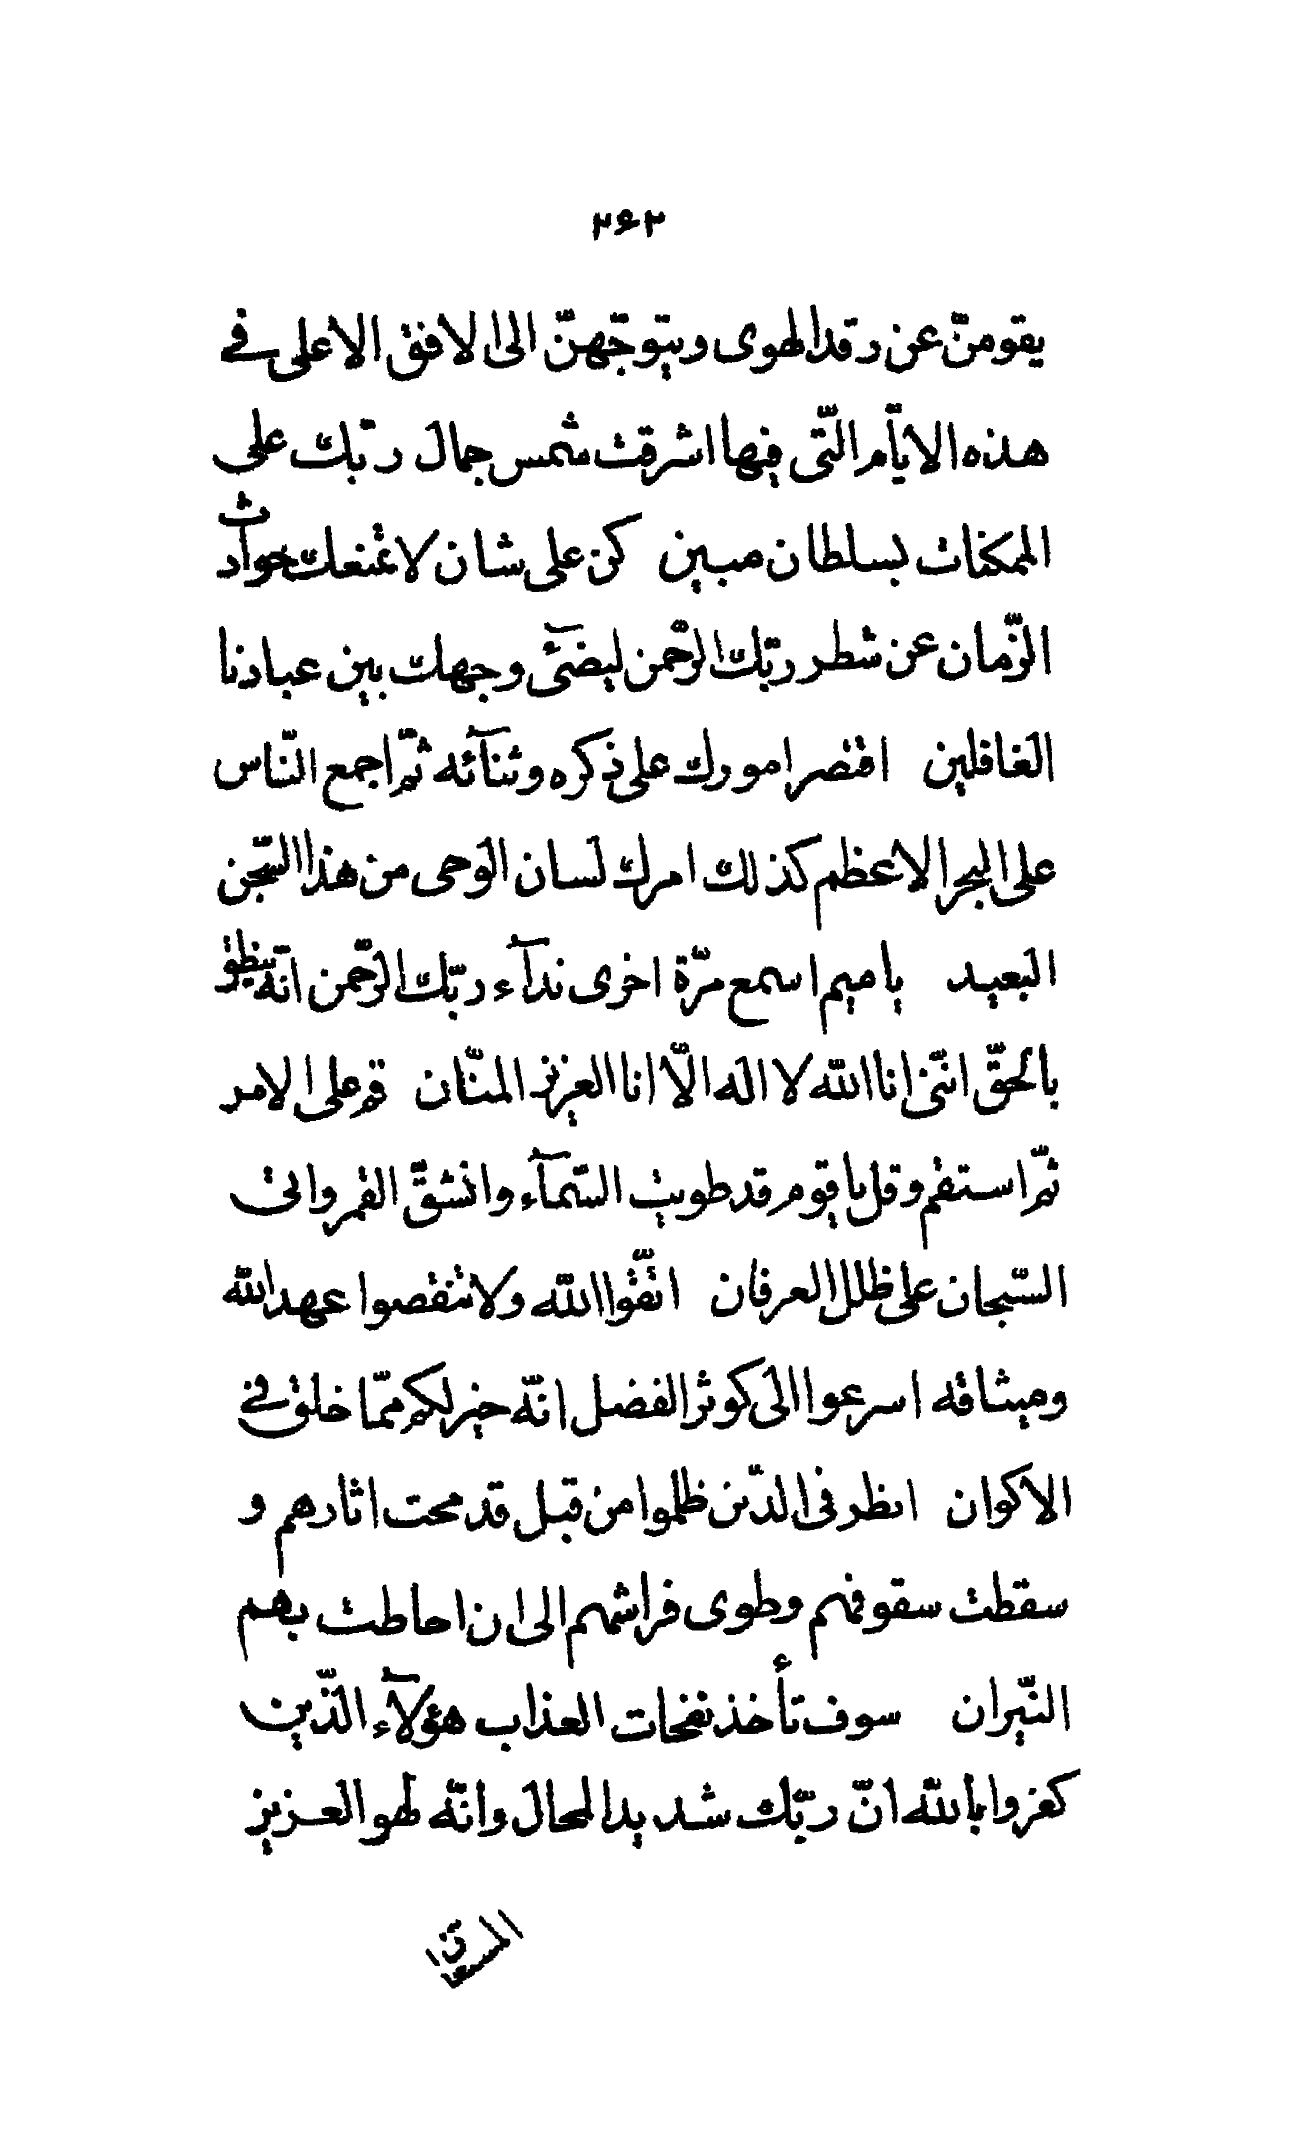 ٢٤٢
يقومنّ عن رقد الهوى ويتوجّهنّ الى الافق الاعلى فى
هذه الايّام الّتى فيها اشرقت شمس جمال ربّك على
الممكنات بسلطان مبين كن على شان لا تمنعك حوادث
الزّمان عن شطر ربّك الرّحمن ليضئ وجهك بين عبادنا
الغافلين اقتصر امورك على ذكره وثنآئه ثمّ اجمع النّاس
على البحر الاعظم كذلك امرك لسان الوحى من هذا السّجن
البعيد يا ميم اسمع مرّة اخرى ندآء ربّك الرّحمن انّه ينطق
بالحقّ انّنى انا اللّه لا اله الّا انا العزيز المنّان قم على الامر
ثمّ استقم وقل يا قوم قد طويت السّمآء وانشقّ القمر واتى
السّبحان على ظلل العرفان اتّقوا اللّه ولا تنقضوا عهد اللّه
وميثاقه اسرعوا الى كوثر الفضل انّه خير لكم ممّا خلق فى
الاكوان انظر فى الّذين ظلموا من قبل قد محت اثارهم و
سقطت سقوفهم وطوى فراشهم الى ان احاطت بهم
النّيران سوف تأخذ نفحات العذاب هؤلآء الّذين
كفروا باللّه انّ ربّك شديد المحال وانّه لهو العزيز
المستعان